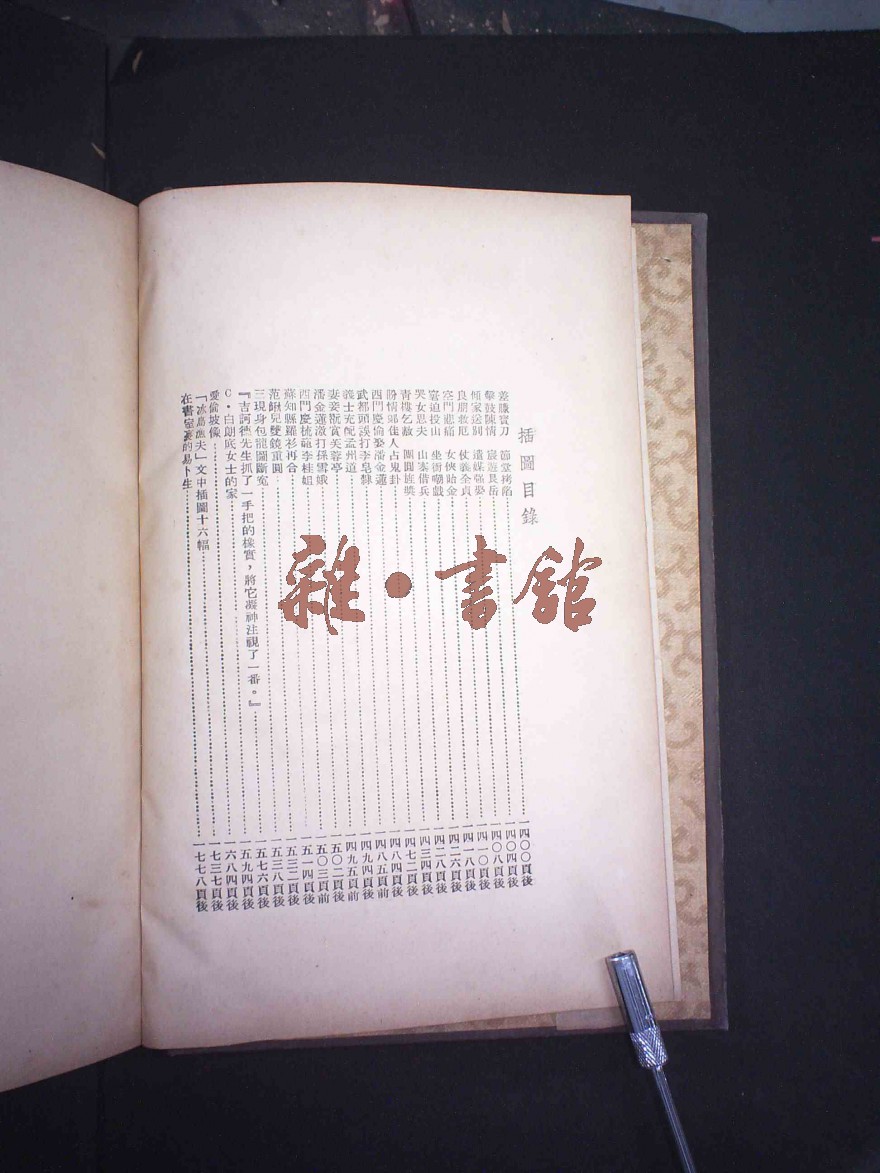 插圖目錄
差賺寶刀 節堂拷陷……一四〇〇頁後
擊鼓陳情 宸遊艮岳……一四〇四頁後
傾家送別 遣媒强娶……一四〇八頁後
良朋救厄 仗義全貞……一四一〇頁後
空門悲痛 女俠貽金……一四一八頁後
窘迫投山 坐衙嘲戲……一四二六頁後
哭女思夫 山寨借兵……一四二八頁後
青樓乞赦 團圓旌奬……一四三四頁後
盼情郎佳人占鬼卦……一四七二頁後
西門慶偷娶潘金蓮……一四八四頁後
武都頭誤打李皂隸……一四八五頁前
義士充配孟州道……一四九四頁後
妻妾翫賞芙蓉亭……一四九五頁前
潘金蓮激打孫雪娥……一五〇二頁後
西門慶梳籠李桂姐……一五〇三頁前
蘇知縣羅衫再合……一五一四頁後
范鰍兒雙鏡重圓……一五三二頁後
三現身包龍圖斷冤……一五三八頁後
『吉訶德先生抓了一手把的橡實，將它凝神注視了一番。』……一五七六頁後
C・白朗底女士的家……一五九四頁後
愛倫坡像……一六八四頁後
「冰島漁夫」文中插圖十六幅……一七三七頁後
在書室裏的易卜生……一七七八頁後
雜・書館